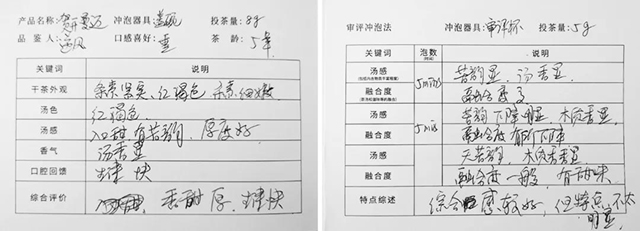 产品名称: 贺开景迈 冲泡器具: 盖碗 投茶量: 8g
品鉴人: 逸风 口感喜好: 重 茶龄: 5年
关键词 说明
干茶外观 条索紧实、红褐色 条索细嫩
汤色 红褐色.
汤感 入口甜 有苦韵, 厚度好
香气 汤香显
口腔回馈 生津 快
综合评价 香甜 厚. 生津快
审评冲泡法 冲泡器具: 审评杯 投茶量: 5g
关键词 泡数时间 说明
汤感 5min 苦韵显, 汤香显.
融合度 融合度
汤感 5min 苦韵下降明显, 木质香显
融合度 融合度有所下降
汤感 无苦韵, 木质香显
融合度 融合度一般, 有甜味
特点综述 综合 度较好, 但特点不太明显.